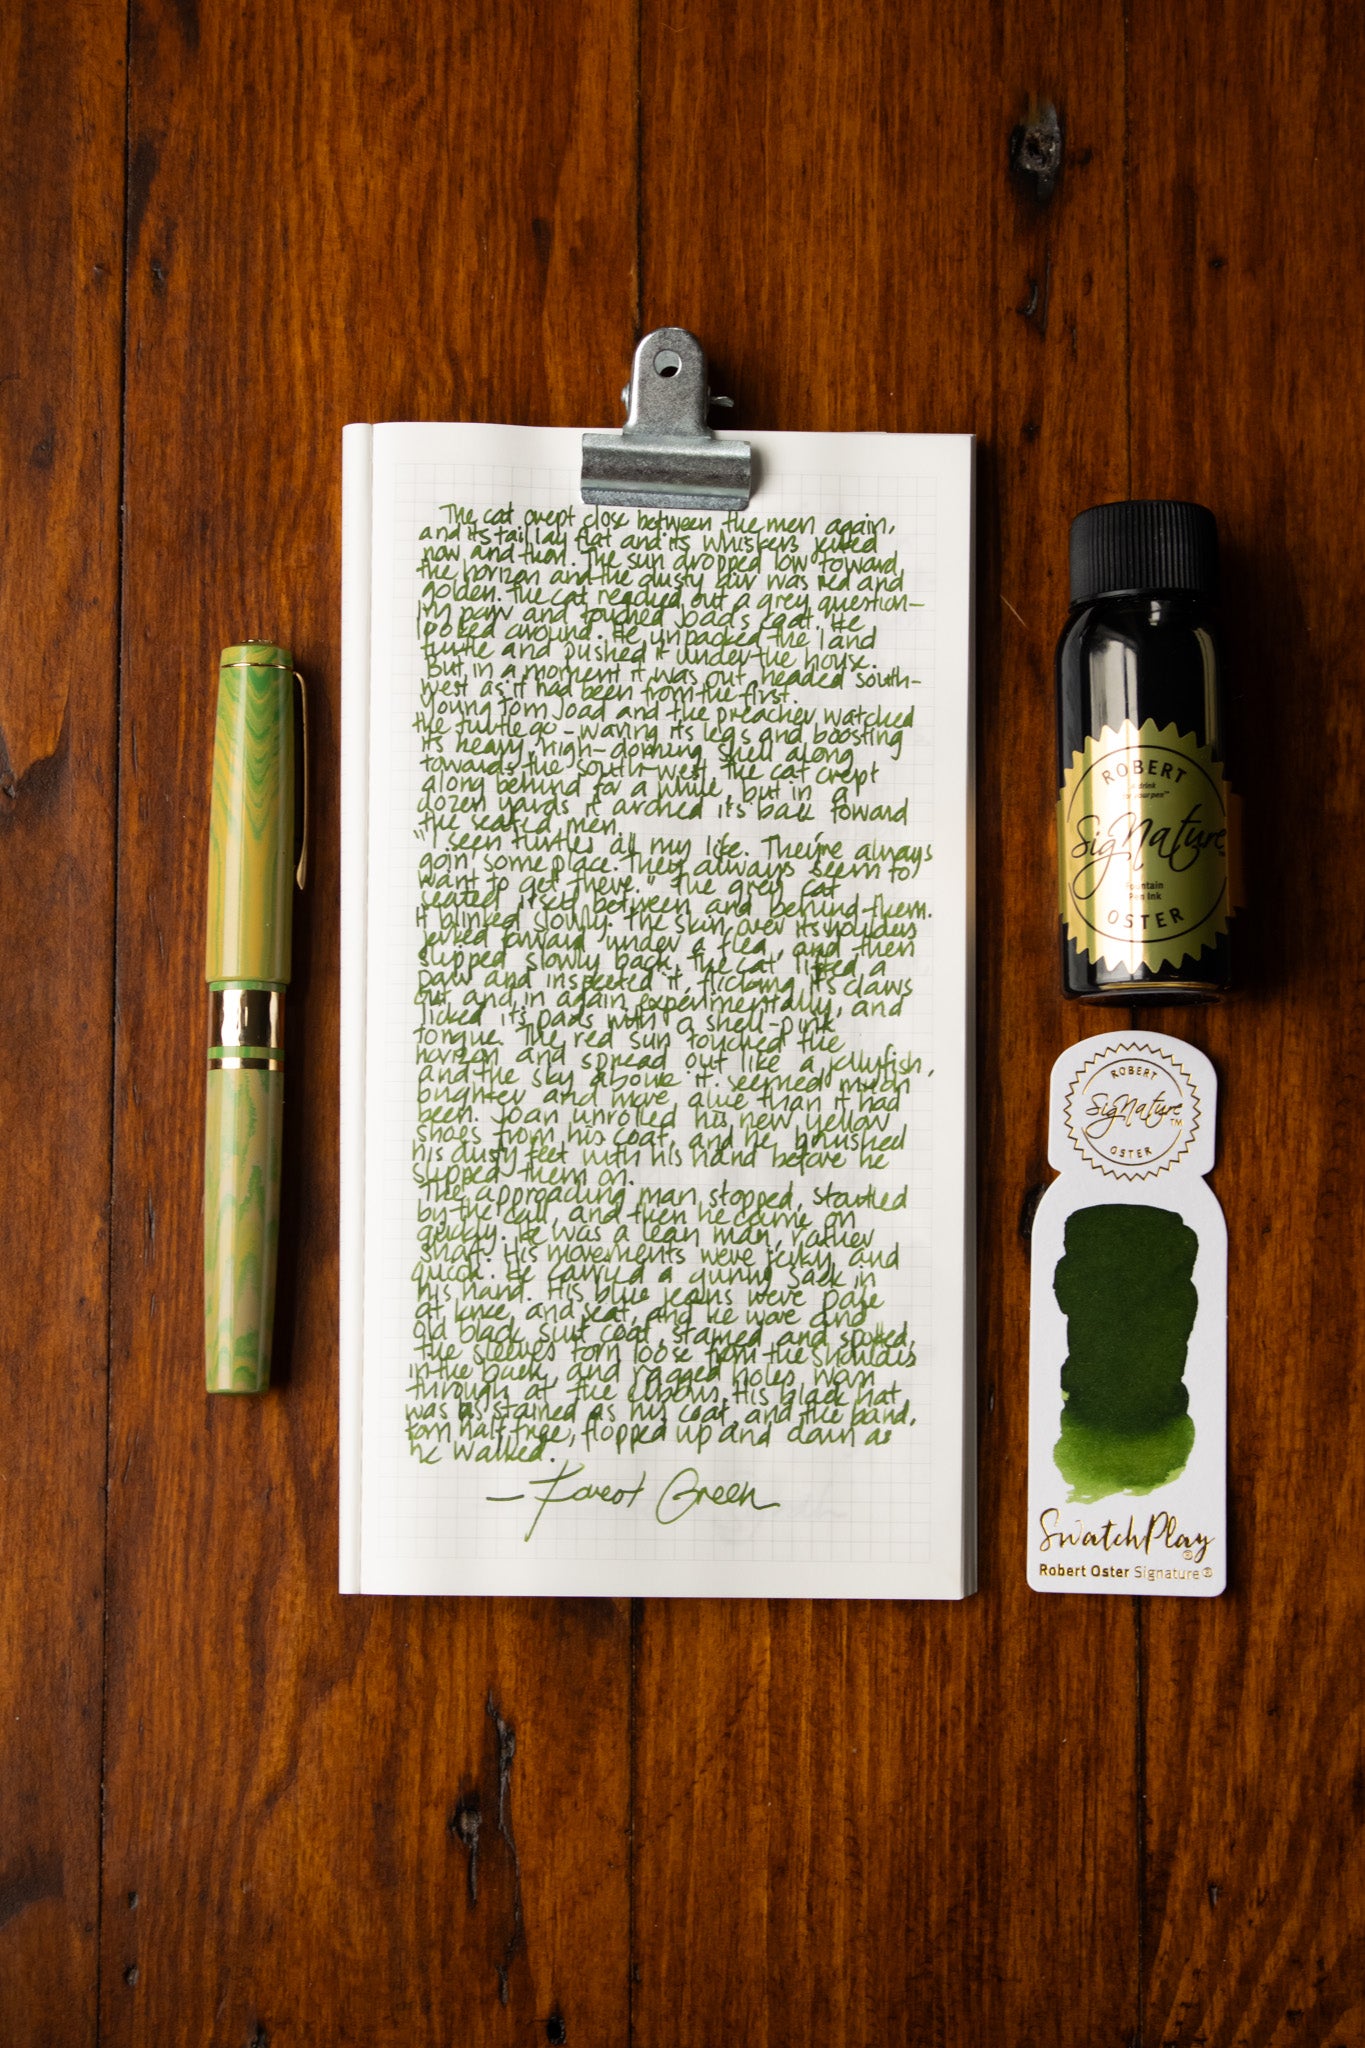 The cat crept close between the men again,
and its tail lay flat and its whiskers jerked
now and then. The sun dropped low toward
the horizon and the dusty air was red and
golden. The cat reached out a grey question-
ing paw and touched Joad's coat. He
looked around. He unpacked the land
turtle and pushed it under the house.
But in a moment it was out, headed south-
west as it had been from the first.
Young Tom Joad and the preacher watched
the turtle go - waving its legs and boosting
its heavy, high-doming shell along
towards the south-west. The cat crept
along behind for a while, but in a
dozen yards it arched its back toward
the seated men.
"I seen turtles all my life. They're always
goin someplace. They always seem to
want to get there." The grey cat
seated itself between and behind them.
It blinked slowly. The skin over its shoulders
jerked forward under a flea, and then
slipped slowly back. The cat lifted a
paw and inspected it, flicking its claws
out and in again experimentally, and
licked its pads with a shell-pink
tongue. The red sun touched the
horizon and spread out like a jellyfish,
and the sky above it seemed much
brighter and more alive than it had
been. Joan unrolled his new yellow
shoes from his coat, and he brushed
his dusty feet with his hand before he
slipped them on.
The approaching man stopped, startled
by the call, and then he came on
quickly. He was a lean man, rather
short. His movements were jerky and
quick. He carried a gunny sack in
his hand. His blue jeans were pale
at knee and seat, and he wore and
old black suit coat, stained and spotted,
the sleeves torn loose from the shoulders
in the back, and ragged holes worn
through at the elbows. His black hat
was as stained as his coat, and the band,
torn half free, flopped up and down as
he walked.
- Forest Green
ROBERT
Signature™
Fountain
Pen Ink
OSTER
ROBERT
Signature™
OSTER
SwatchPlay®
Robert Oster Signature®